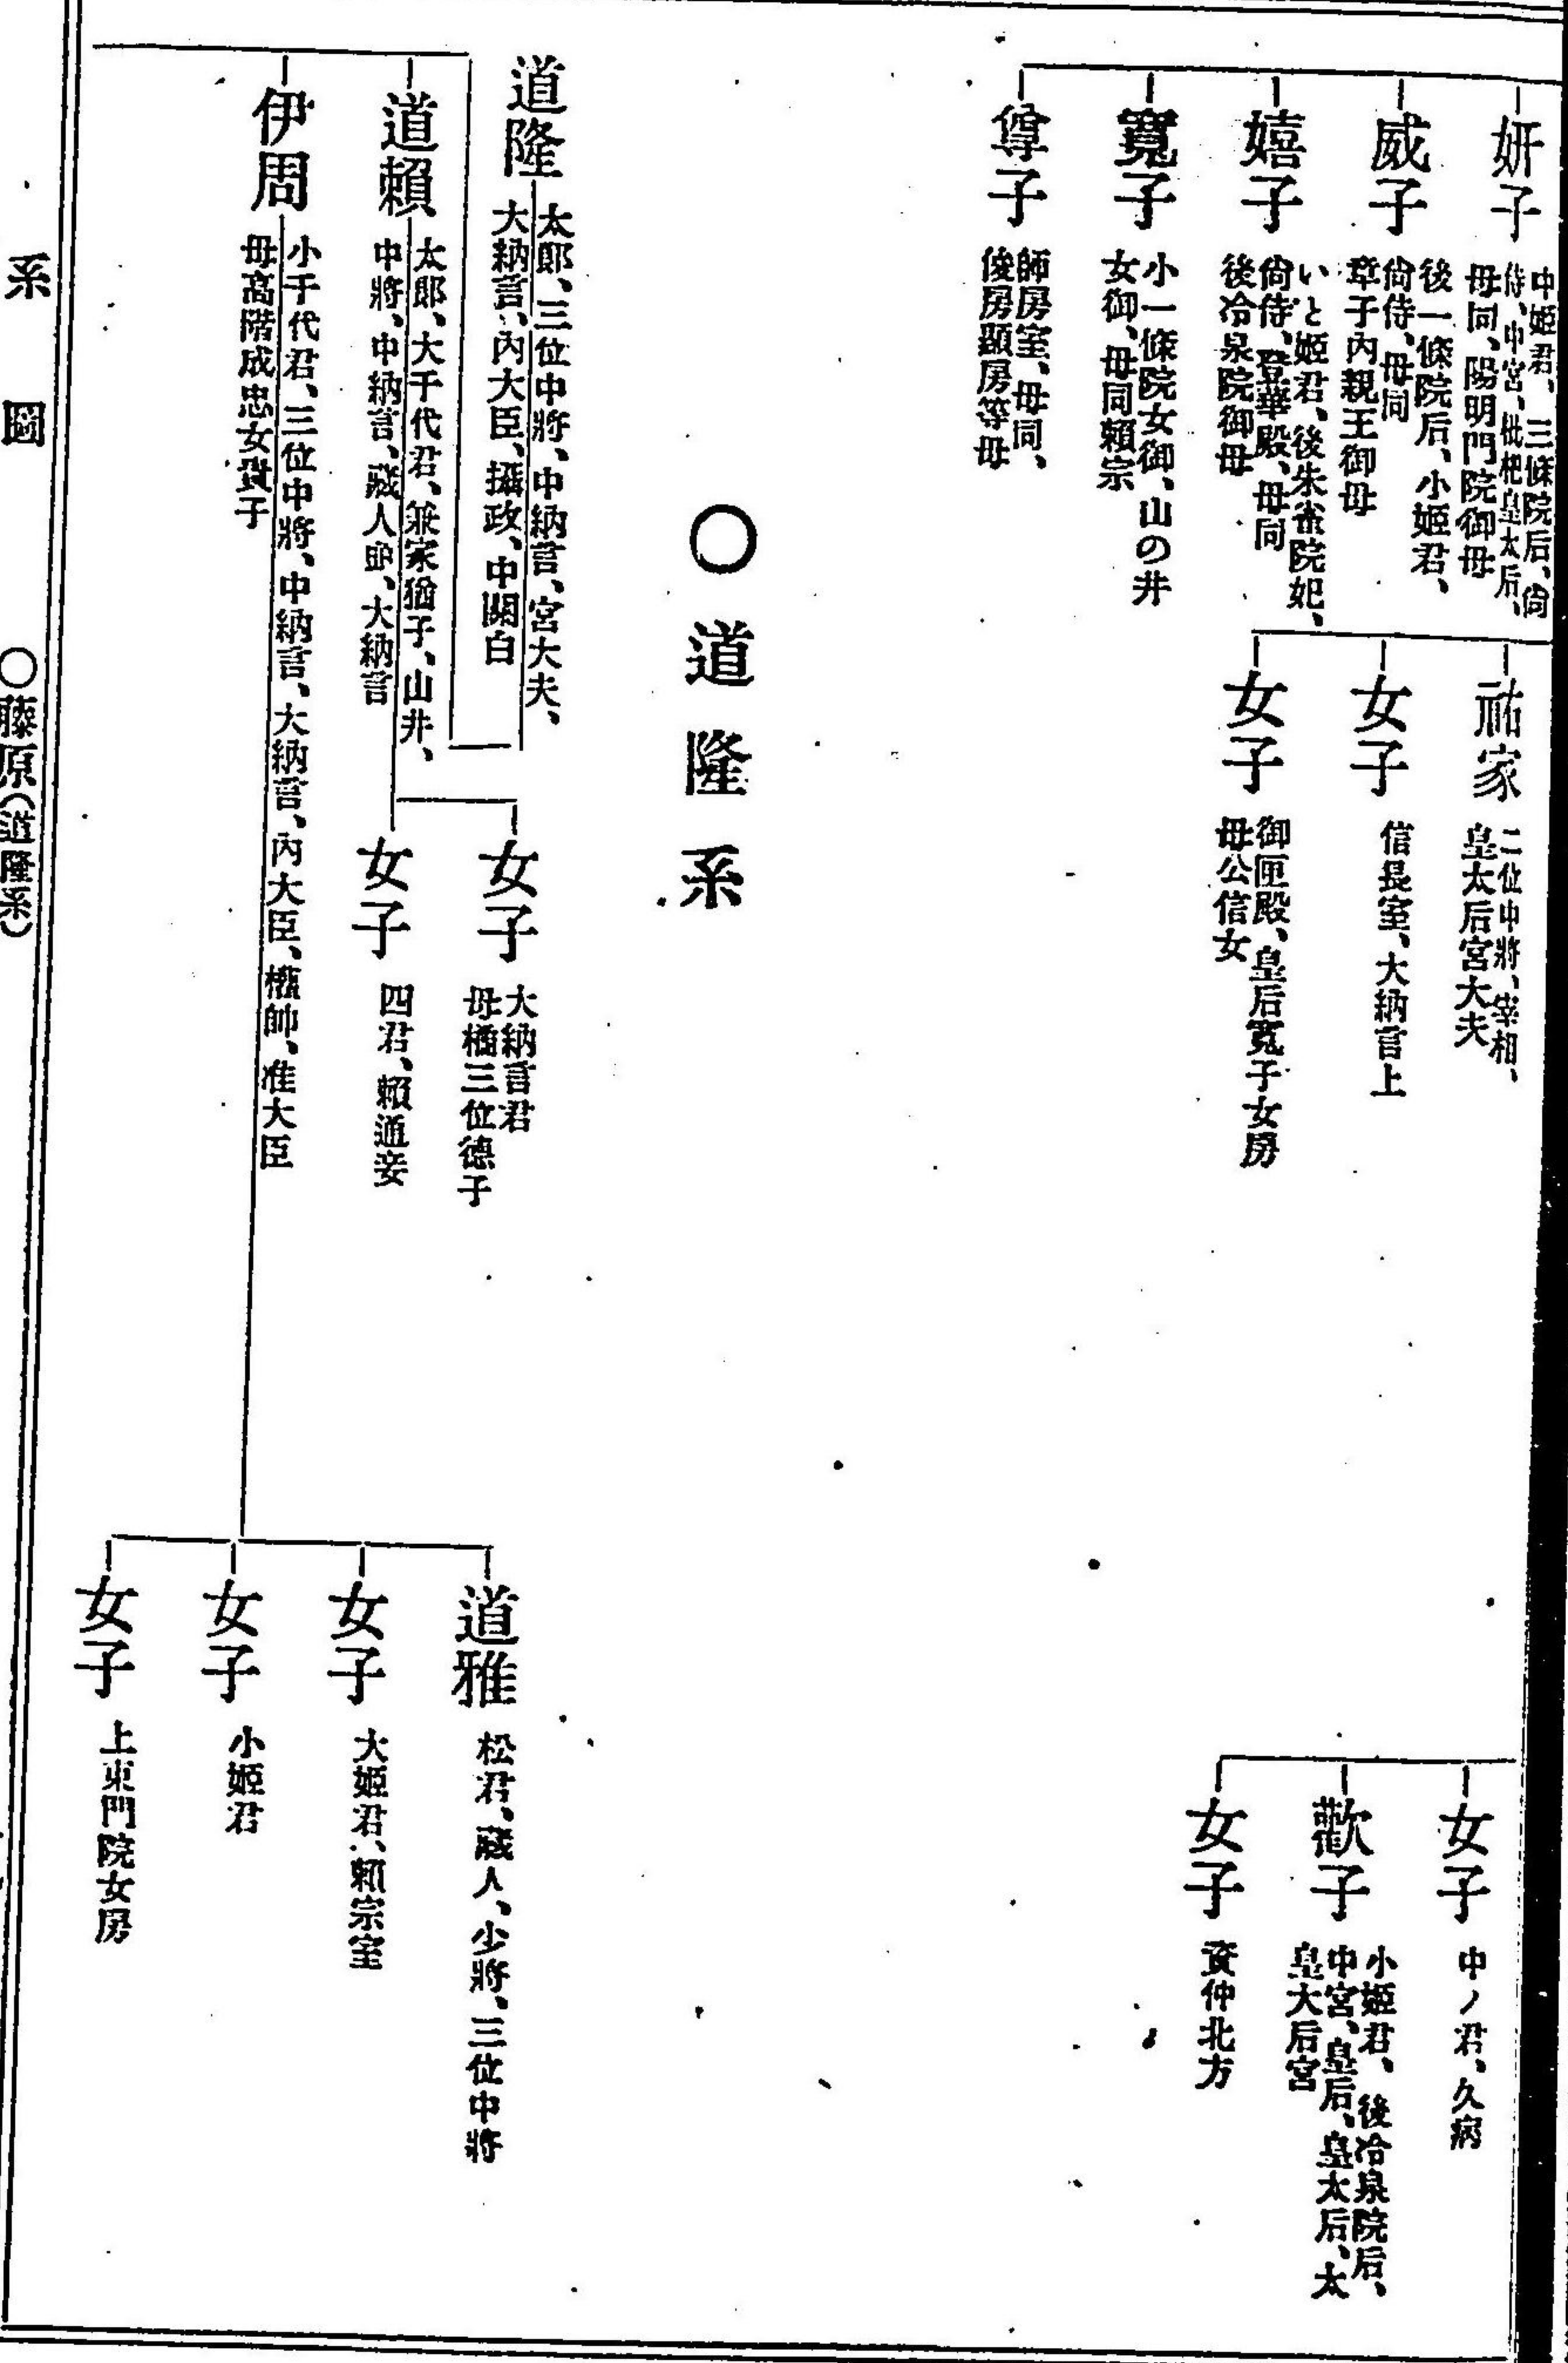 妍子
中姬君、三條院后、尙
侍、中宮、枇杷皇太后、
母同、陽明門院御母
威子
後一條院后、小姬君、
尙侍、母同
章子內親王御母
嬉子
いと姬君、後朱雀院妃、
尙侍、登華殿、母同
後冷泉院御母
寬子
小一條院女御、山の井
女御、母同賴宗
尊子
師房室、母同、
俊房顯房等母
祐家
二位中將、宰相、
皇太后宮大夫
女子
信長室、大納言上
女子
御匣殿、皇后寬子女房
母公信女
女子
中ノ君、久病
歡子
小姬君、後冷泉院后、
中宮、皇后、皇太后、太
皇大后宮
女子
資仲北方
〇道隆系
道隆
太郞、三位中將、中納言、宮大夫、
大納言、內大臣、攝政、中關白
道賴
太郞、大千代君、兼家猶子、山井、
中將、中納言、藏人頭、大納言
女子
大納言君
母橘三位德子
女子
四君、賴通妾
伊周
小千代君、三位中將、中納言、大納言、內大臣、權帥、准大臣
母高階成忠女貴子
道雅
松君、藏人、少將、三位中將
女子
大姬君、賴宗室
女子
小姬君
女子
上東門院女房
系圖
〇藤原(道隆系)